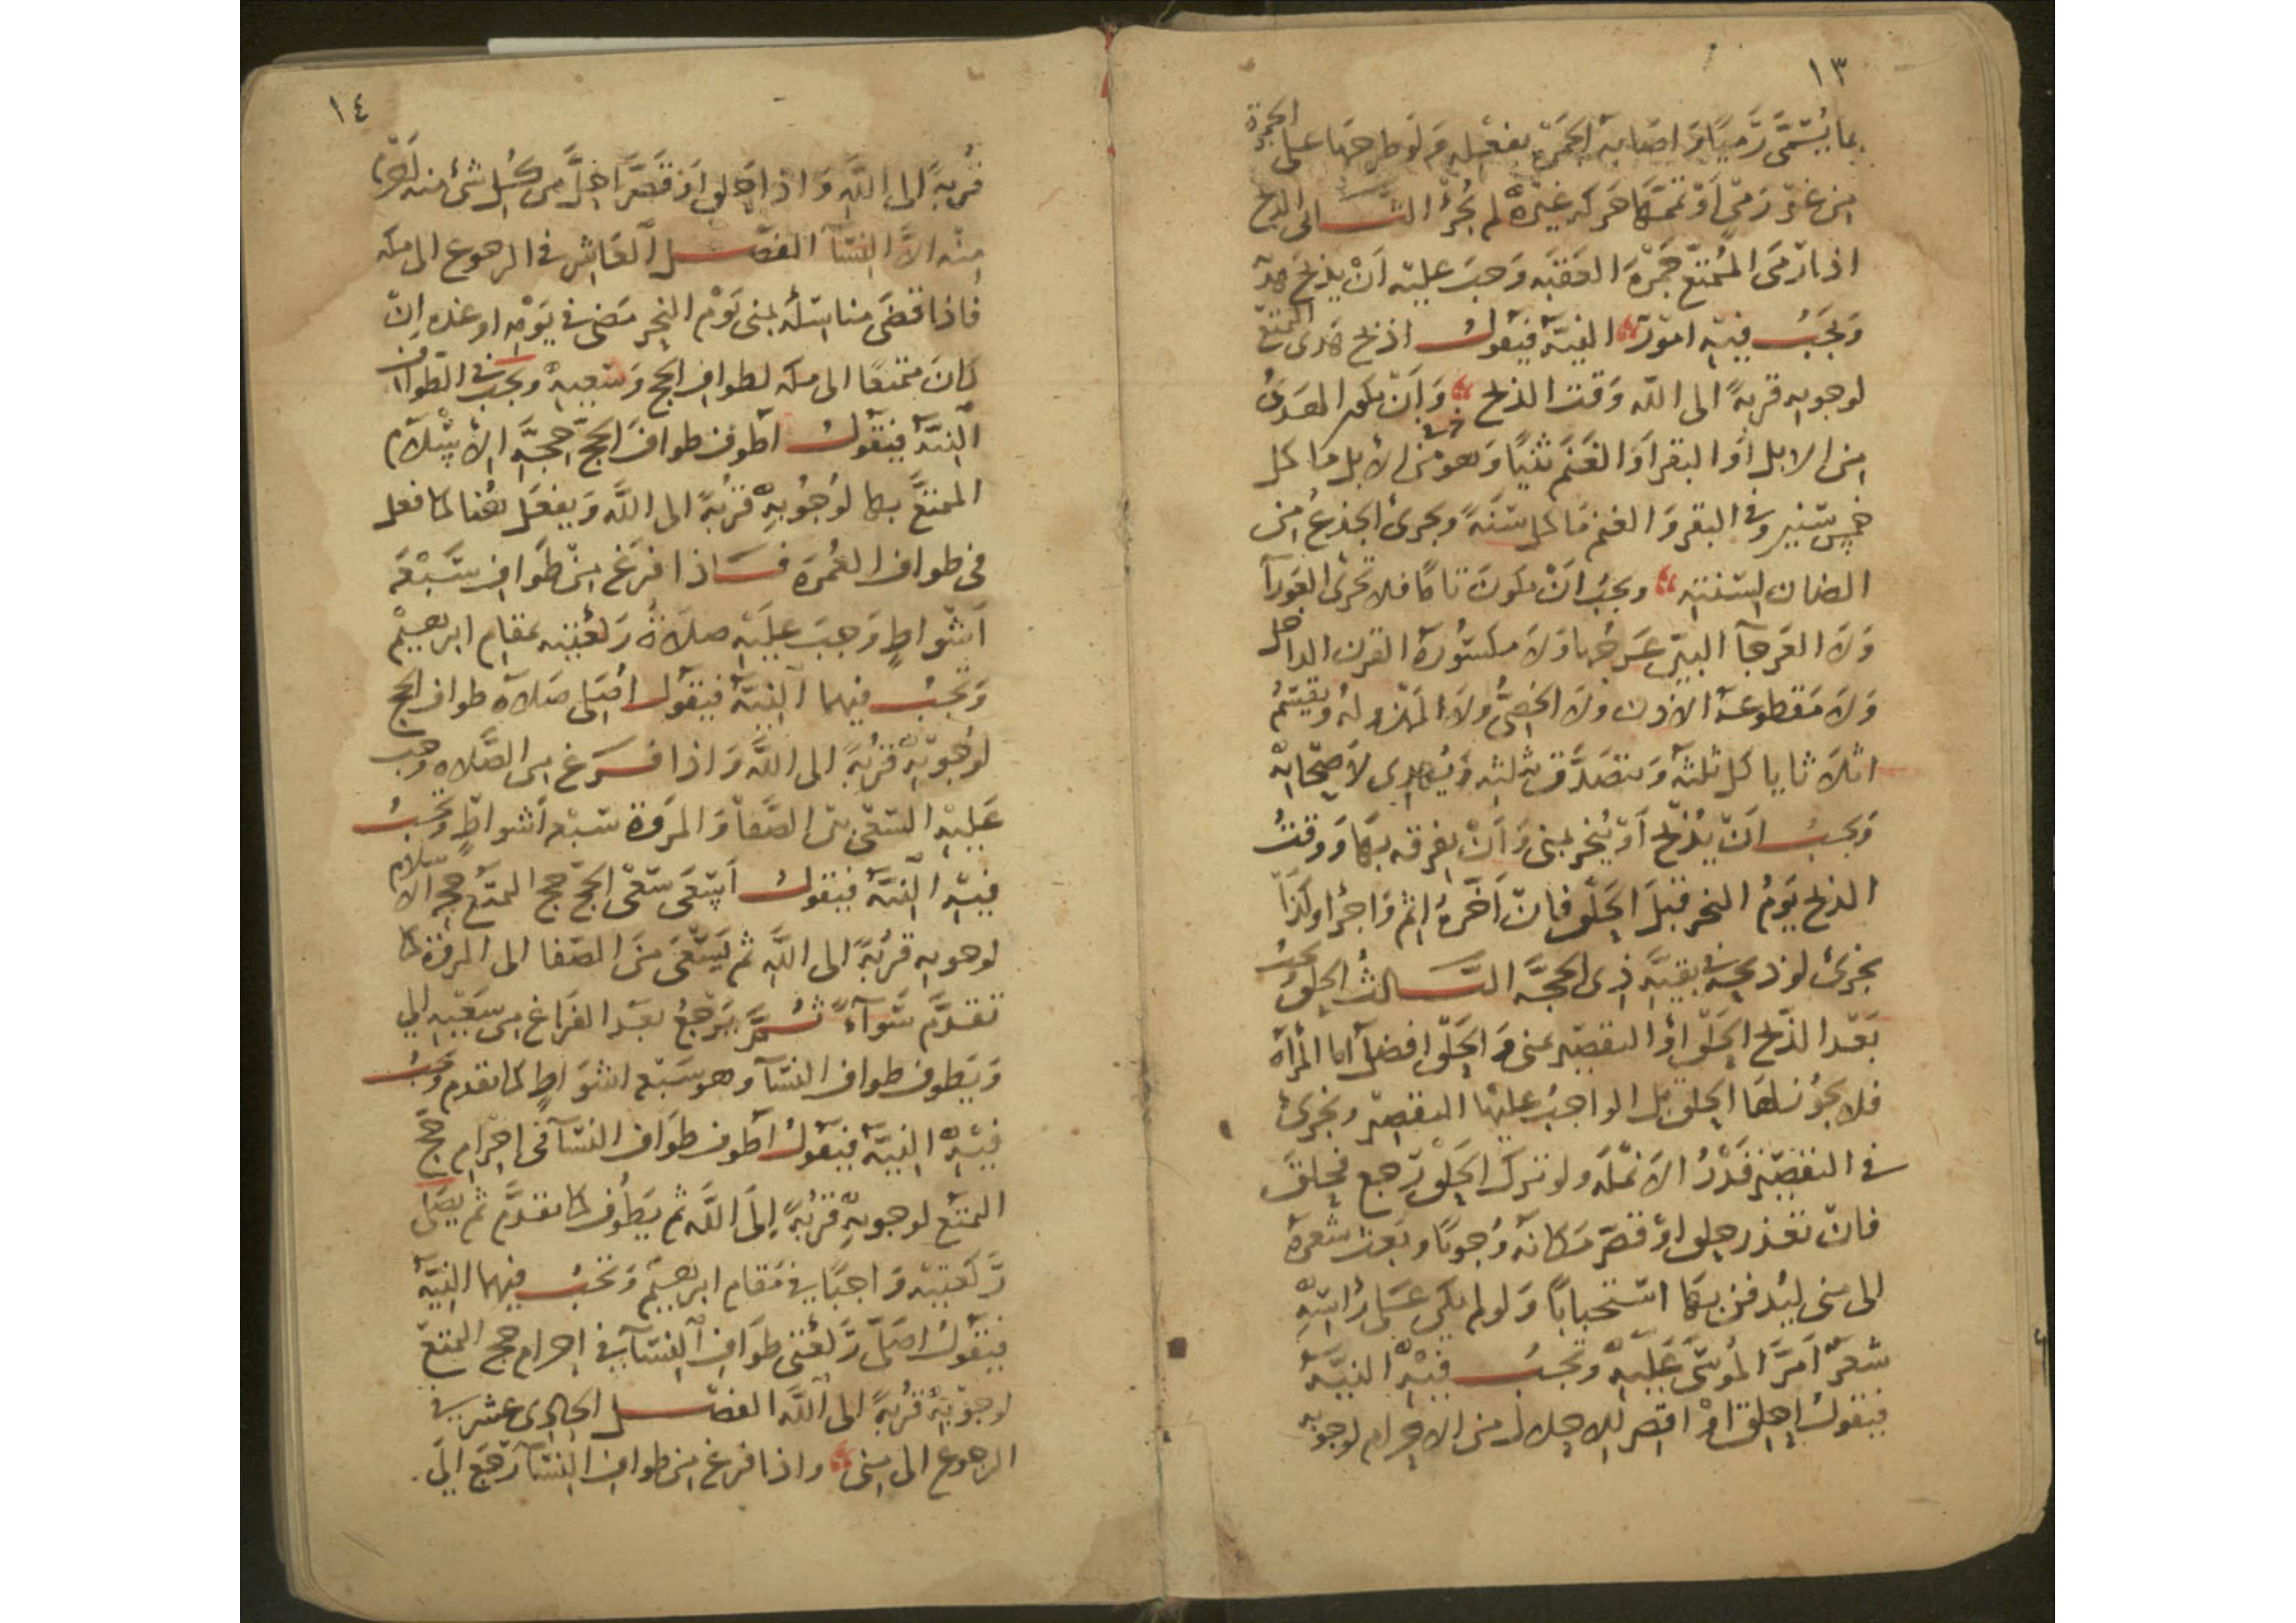 ١٣
بما يُسَمَّى رَمْيًا وَاصَابة الجَمرَة بفعْله وَلَوطرحَها على الجمرة
مِن غَيْر رَمْيٍ اَوْ تمَّمَهَا حَركَة غَيْرهْ لم تُجْز الثــانى الذبح
اذا رَمَى المُتمَتِّع جَمْرَة العَقَبَه وَجبَ عليْه اَنْ يذبَحَ هديه
وَيَجبُ فيْه امَورٌ النيَّة فيَقولُ اذبح هَدى التمتع
لوجوبه قربَةً الى اللّه وَقت الذبح وَاَنْ يكون الهَدىُ
مِن الابل اَو البقر اَو الغَنَم ثنيًا وَهو من الأبل ما كمل
خمس سَنين وَفى البقر وَ الغنم مَا كمل سَنَةً ويجزئ الجذعُ من
الضان لسَنته ويجبُ انَ يكونَ تامًا فلا تجزئ العَورآ
وَلاَ العَرجآ البيّن عَرَجُها وَلاَ مكسُورة القرن الداخل
وَلاَ مَقطوعة الاذن ولاَ الخصىُّ وَلاَ المهزوله وَيقسِّمُ
اثلاَثا ياكل ثلثه وَيتصَدَّق بثلثه وَيُهدى لاَصحَابه
وَيجبُ انَ يُذبح اَوْ يُنحر بمنى وَ اَنْ يفرقه بهَا وَوقتُ
الذبح يَومُ النحر قبلَ الحَلق فان اَخَّرهُ اثم وَاجزا وَكَذا
يجزئ لو ذبحه فى بقيَّة ذى الحجَّه الثَّــالثُ الحلق ويجبُ
بَعْد الذّبح الحَلق اَو التقصير بمنى وَ الحَلق افضل اما المرأة
فلا يجوُز لهَا الحلق بل الواجبُ عليْها التقصير ويجزئ
فى التقصير قَدْرُ الاَنملَه ولو ترك الحَلق رَجع فحلقَ
فان تعذر حلق اوْ قصّر مَكانه وُجوبًا وبَعث شعرهُ
الى منى ليُدفن بهَا استحبابًا وَلو لم يكن عَلى رَاسهْ
شعرٌ اَمرَّ المُوسَى عَليْه ويجبُ فيْه النيَّة
فيقولُ احلق اَوْ اقصر للاحلال من الاحرام لوجوبه
١٤
قُربةً الى اللَّه وَ اذا حَلق اَو قصَّر احلَّ من كُــل شئ منه احرم
مِنْه الاَّ النسآ الفصْــل العَاشر فى الرجوع الى مكه
فاذا قضَى مناسَكه بمنى يَوْم النحر مَضى فى يَوْمه او غده اِن
كانَ متمتعًا الى مكه لطواف الحج وَسعيهْ ويجب فى الطواف
النيَّة فيَقولُ اَطُوف طوافَ الحَجّ حجَّة الأسْلام
المتمتَّع بها لوُجُوبهِ قُربةً الى اللَّه وَيفعَل هُنا كما فعل
فى طواف العُمرَه فــاذا فرَغ مِن طَوَاف سَبْعَه
اَشْوَاطٍ وَجبَ عليْه صلاَةُ رَكعتين بمَقام ابرهيم
وَتجبُ فيهما النيَّة فيَقول اصَلى صَلاة طواف الحج
لوُجُوبه قُربةً الى اللَّه وَ اذا فــرغ من الصَّلاه وجب
عَليْه السَعْى بَين الصَّفا وَالمَروَة سَبْعة اَشواطٍ وَيجبُ
فيْه النيَّة فيَقولُ اَسْعَى سَعْى الحَجّ حج التمتع حجة الاسلام
لوجوبه قُربَةً الى اللَّه ثم يَسْعَى مِنَ الصّفا الى المروَة كما
تقدَّم سَوآءً ثُــمَّ يَرْجعُ بعْد الفراغ من سَعْيه الى
وَيَطوف طواف النسآ وهو سَبْعَه اشوَاطٍ كما تقدم وَيجبُ
فيْه النيَّة فيَقولُ اَطوف طوَاف النسآ فى احرام حجّ
التمتع لوجوبهِ قُربةً اِلىَ اللَّه ثم يَطُوف كما تقدَّم ثم يصَلى
رَكعتين وَاجبًا فى مَقام ابرهيم وَ تجبُ فيهما النيَّة
فيَقولُ اصَلّى رَكعَتى طوَاف النسآ فى احرام حج التمتع
لوجوبه قُربةً الى اللَّه الفصْــل الحادى عشر فى
الرجوع الى منى وَاذا فرغ من طواف النسآ رَجَع الىَ